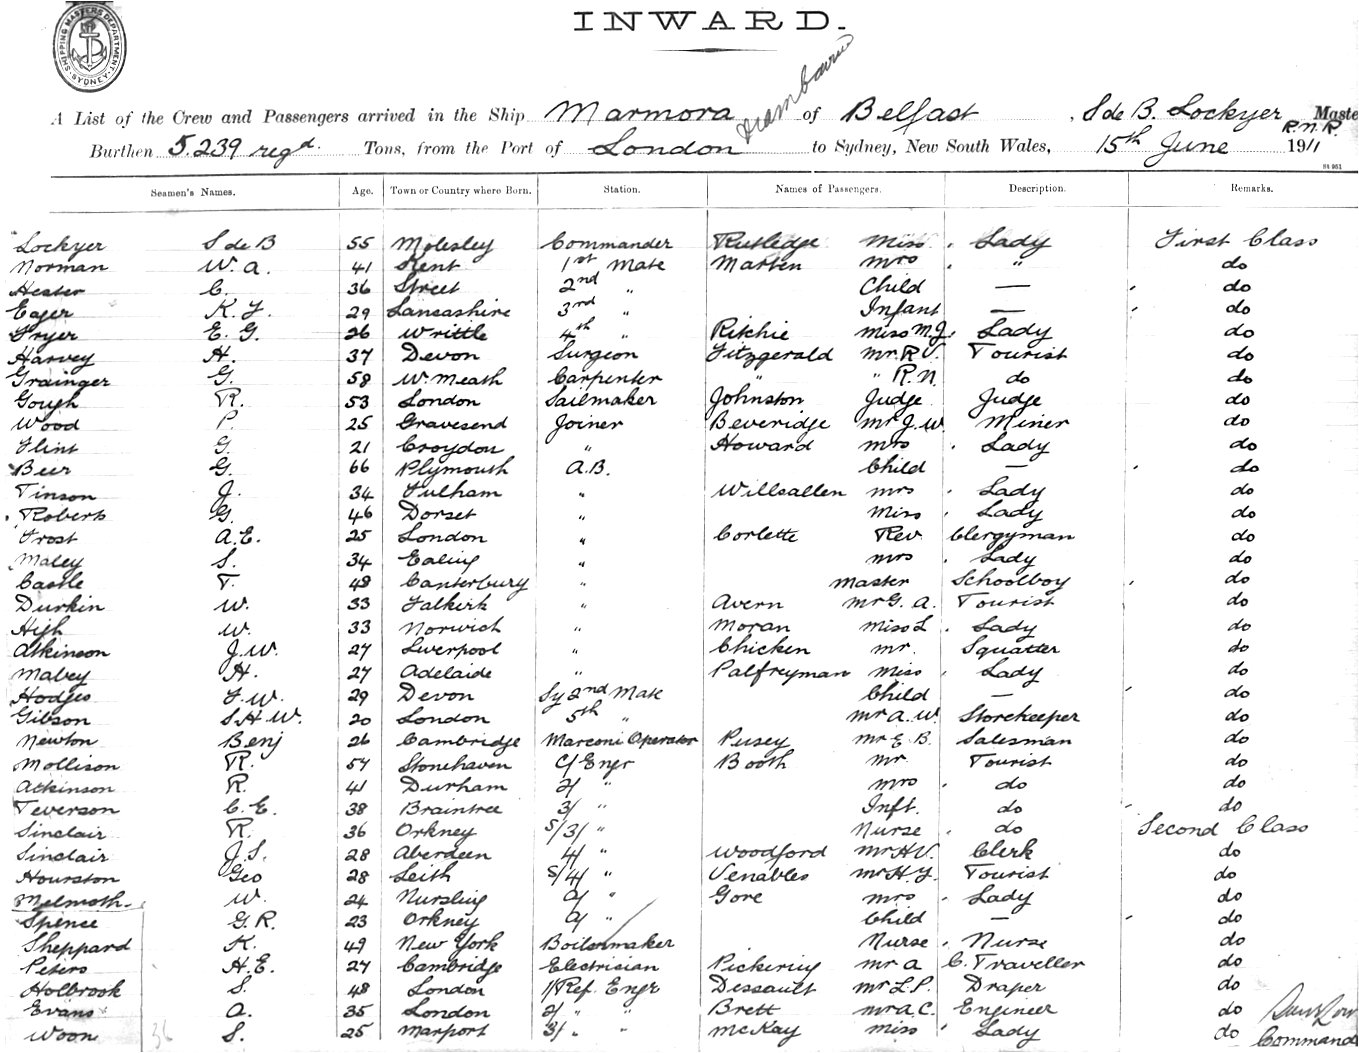 SHIPPING MASTERS DEPARTMENT SYDNEY
INWARD.
A List of the Crew and Passengers arrived in the Ship Marmora of Belfast, S de B. Lockyer Maste
R.N.R.
Burthen 5.239 regd. Tons, from the Port of London to Sydney, New South Wales, 15th June 1911
Seamen's Names. Age. Town or Country where Born. Station. Names of Passengers. Description. Remarks.
Lockyer S de B 55 Molesley Commander Rutledge Miss Lady First Class
Norman W. A. 41 Kent 1st Mate Marten Mrs " do
Hester C. 36 Street 2nd " Child — do
Eager K. J. 29 Lancashire 3rd " Infant — do
Fryer E. G. 26 Writtle 4th " Ritchie Miss M.J. Lady do
Harvey H. 37 Devon Surgeon Fitzgerald Mr R V. Tourist do
Grainger G. 58 W. Meath Carpenter " " R.N. do do
Gough R. 53 London Sailmaker Johnston Judge Judge do
Wood P. 25 Gravesend Joiner Beveridge Mr J. W. Miner do
Flint G. 21 Croydon " Howard Mrs Lady do
Beer G. 66 Plymouth A.B. Child — do
Tinson J. 34 Fulham " Willsallen Mrs Lady do
Roberts G. 46 Dorset " Miss Lady do
Frost A.E. 25 London " Corlette Rev. Clergyman do
Maley S. 34 Ealing " Mrs Lady do
Castle T. 48 Canterbury " Master Schoolboy do
Durkin W. 33 Falkirk " Avern Mr G. A. Tourist do
High W. 33 Norwich " Moran Miss L Lady do
Atkinson J.W. 27 Liverpool " Chicken Mr. Squatter do
Mabey H. 27 Adelaide " Palfreyman Miss Lady do
Hodges F.W. 29 Devon Sy 2nd Mate Child — do
Gibson S.H.W. 20 London 5th " Mr A. W. Storekeeper do
Newton Benj 26 Cambridge Marconi Operator Pusey Mr E. B. Salesman do
Mollison R. 57 Stonehaven C/ Engr Booth Mr. Tourist do
Atkinson R. 41 Durham 2/ " Mrs do do
Teverson C. E. 38 Braintree 3/ " Inft. do do
Sinclair R. 36 Orkney S/3/ " Nurse do Second Class
Sinclair J.S. 28 Aberdeen 4/ " Woodford Mr H V. Clerk do
Hourston Geo 28 Leith S/4/ " Venables Mr H. J. Tourist do
Melmoth W. 24 Nursling " Gore Mrs Lady do
Spence G. R. 23 Orkney " Child — do
Sheppard K. 49 New York Boilermaker Nurse Nurse do
Peters H. E. 27 Cambridge Electrician Pickering Mr A C. Traveller do
Holbrook S. 48 London 1/Ref. Engr Dessault Mr L.P. Draper do
Evans A. 35 London 2/ " " Brett Mr A. C. Engineer do
Woon 36 S. 25 Marport 3/ " " McKay Miss Lady do Command